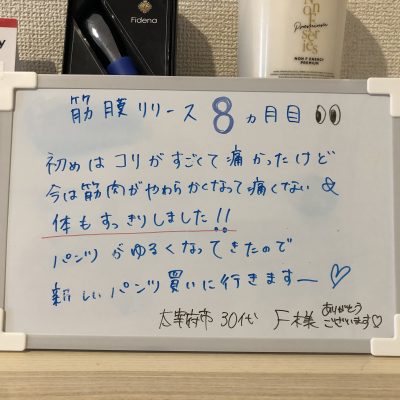 Fidena
Premium
series
NON-F ENERGY
PREMIUM
筋膜リリース 8ヵ月目
初めはコリがすごくて痛かったけど
今は筋肉がやわらかくなって痛くない&
体もすっきりしました!!
パンツがゆるくなってきたので
新しいパンツ買いに行きますー♡
太宰府市 30代 F様 ありがとう
ございます♡